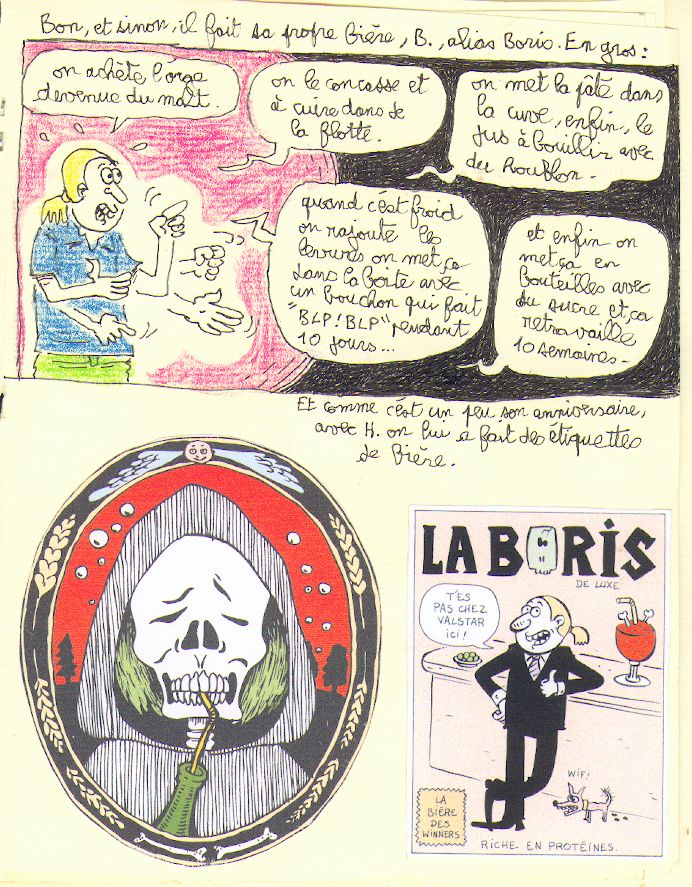 Bon, et sinon, il fait sa propre bière, B., alias Boris. En gros :
on achète l'orge
devenue du malt.
on le concasse et
à cuire dans de
la flotte.
on met la pâte dans
la cuve, enfin, le
jus à bouillir avec
du houblon.
quand c'est froid
on rajoute les
levures on met ça
dans la boite avec
un bouchon qui fait
"BLP! BLP" pendant
10 jours...
et enfin on
met ça en
bouteilles avec
du sucre et ça
retravaille
10 semaines.
Et comme c'est un peu son anniversaire,
avec H. on lui a fait des étiquettes
de bière.
LA BORIS
DE LUXE
T'ES
PAS CHEZ
VALSTAR
ICI !
WIF!
LA
BIÈRE
DES
WINNERS
RICHE EN PROTÉINES.